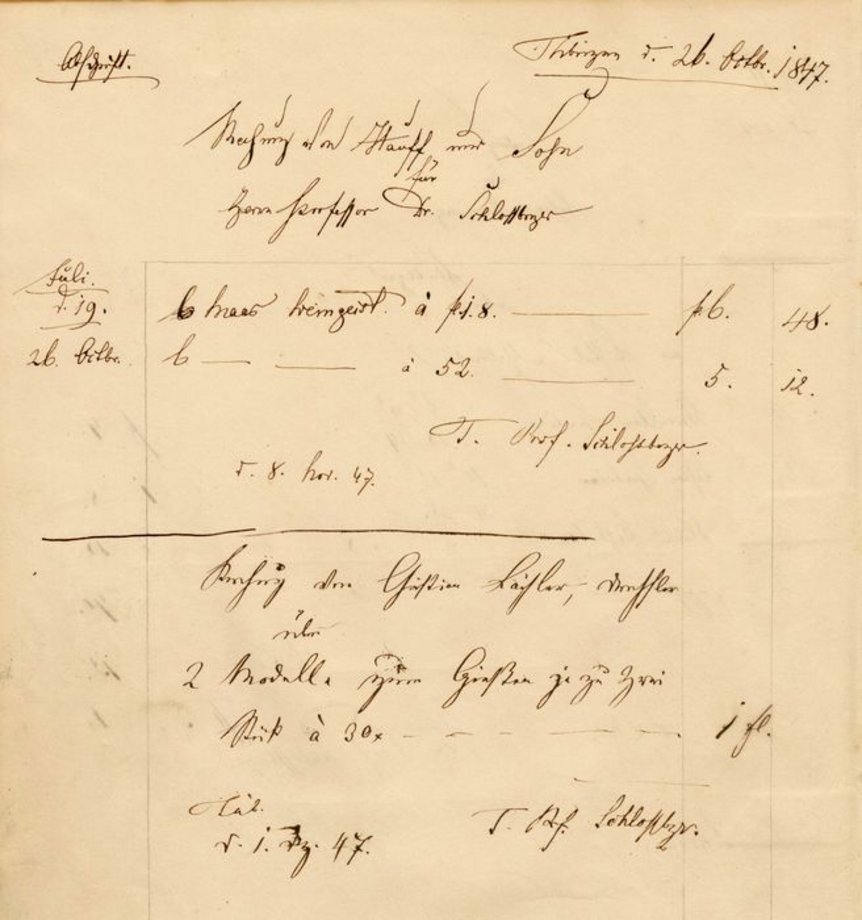 Abschrift.
Tübingen d. 26. Octbr. 1847.
Rechnung von Hauff und Sohn
für
Herrn Professor Dr. Schlossberger
Juli.
d. 19. 6 Maas Weingeist. à f 1. 8. f 6. 48.
26. Octbr. 6 — — à 52. 5. 12.
T. Prof. Schlossberger.
d. 8. Nov. 47.
Rechnung von Christian Lächler, Drechsler
über
2 Modelle zum Gießen je zu zwei
Stük à 30x - - - - 1 fl.
Tüb.
d. 1. Dez. 47. T. Prf. Schlossbgr.